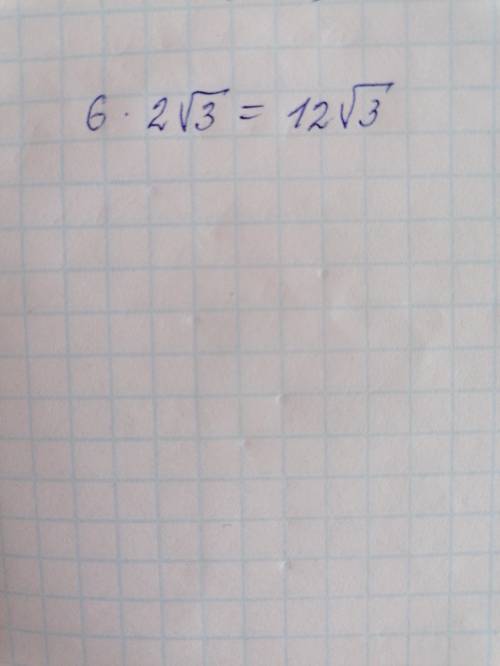 6 · 2√3 = 12√3